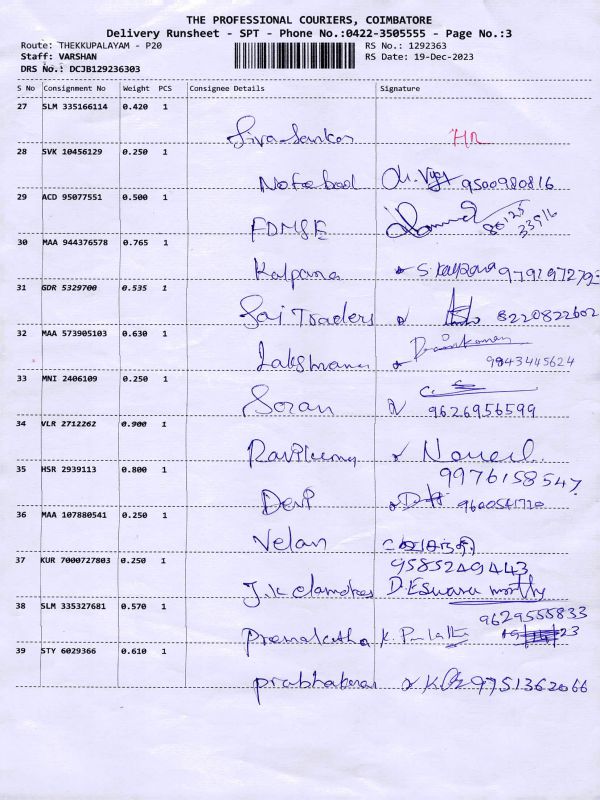 THE PROFESSIONAL COURIERS, COIMBATORE
Delivery Runsheet - SPT - Phone No.:0422-3505555 - Page No.:3
Route: THEKKUPALAYAM - P20
RS No.: 1292363
Staff: VARSHAN
RS Date: 19-Dec-2023
DRS No.: DCJB129236303
S No Consignment No Weight PCS Consignee Details Signature
27 SLM 335166114 0.420 1
Sivasankar HR
28 SVK 10456129 0.250 1
9500980816
29 ACD 95077551 0.500 1
86125
33916
30 MAA 944376578 0.765 1
Kalpana S. Kalpana
31 GDR 5329700 0.535 1
Sai Traders 8220822602
32 MAA 573905103 0.630 1
Lakshmana 9843445624
33 MNI 2406109 0.250 1
9626956599
34 VLR 2712262 0.900 1
35 HSR 2939113 0.800 1
9976158547
Devi
36 MAA 107880541 0.250 1
Velan
37 KUR 7000727803 0.250 1
9585249443
J.K D. Eswara morthy
38 SLM 335327681 0.570 1
9629555833
Premalatha K.
39 STY 6029366 0.610 1
Prabhakaran 9751362066